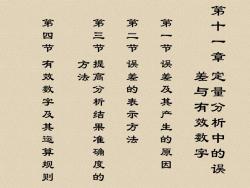 第十一章 定量分析中的误
差与有效数字
第一节 误差及其产生的原因
第二节 误差的表示方法
第三节 提高分析结果准确度的
方法
第四节 有效数字及其运算规则